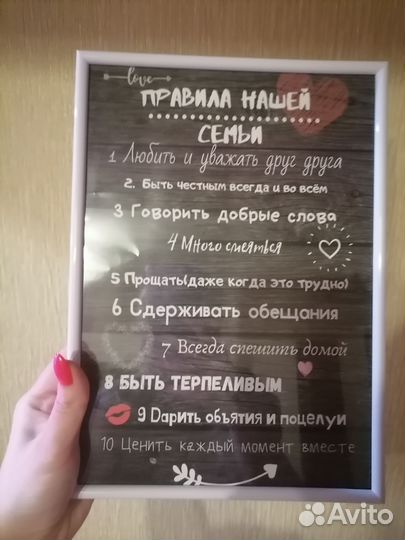 love
ПРАВИЛА НАШЕЙ
СЕМЬИ
1 Любить и уважать друг друга
2. Быть честным всегда и во всём
3 Говорить добрые слова
4 Много смеяться
5 Прощать(даже когда это трудно)
6 Сдерживать обещания
7 Всегда спешить домой
8 БЫТЬ ТЕРПЕЛИВЫМ
9 Dарить объятия и поцелуи
10 Ценить каждый момент вместе
Avito